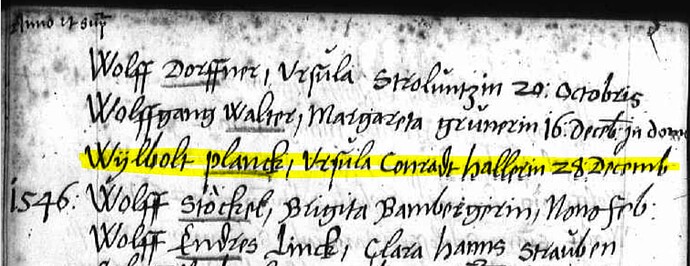 Anno ut supra
Wolff Dorffner, Ursula Stroluntzin 20: Octobris
Wolffgang Walter, Margareta grünerin 16: Decēb: Jn
Wylbolt planck, Ursula Conradt hallerin 28: Decemb
1546: Wolff Stöckel, Brigita Bambergerin, Nono feb:
Wolff Endres Linck, Clara hanns Strauben